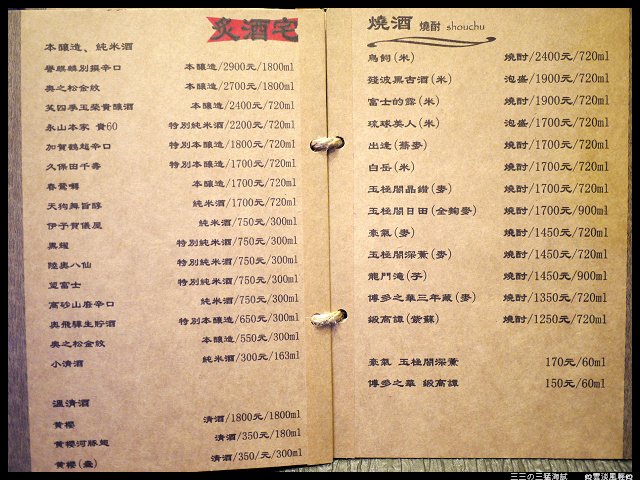 炙酒宅
本釀造、純米酒
譽麒麟別撰辛口 本釀造/2900元/1800ml
奥之松金紋 本釀造/2700元/1800ml
笑四季玉榮貴釀酒 本釀造/2400元/720ml
永山本家 貴60 特別純米酒/2200元/720ml
加賀鶴超辛口 特別本釀造/1800元/720ml
久保田千壽 特別本釀造/1700元/720ml
春鶯囀 本釀造/1700元/720ml
天狗舞旨醇 純米酒/1700元/720ml
伊予賀儀屋 純米酒/750元/300ml
黑耀 特別純米酒/750元/300ml
陸奥八仙 特別純米酒/750元/300ml
望富士 特別純米酒/750元/300ml
高砂山廃辛口 純米酒/750元/300ml
奥飛驒生貯酒 特別本釀造/650元/300ml
奥之松金紋 本釀造/550元/300ml
小清酒 純米酒/300元/163ml
溫清酒
黃櫻 清酒/1800元/1800ml
黃櫻河豚翅 清酒/350元/180ml
黃櫻(壺) 清酒/350/元/300ml
燒酒 燒酎 shouchu
鳥飼(米) 燒酎/2400元/720ml
殘波黑古酒(米) 泡盛/1900元/720ml
富士的露(米) 燒酎/1900元/720ml
琉球美人(米) 泡盛/1700元/720ml
出逢(蕎麥) 燒酎/1700元/720ml
白岳(米) 燒酎/1700元/720ml
玉極閣晶鑽(麥) 燒酎/1700元/720ml
玉極閣日田(全麴麥) 燒酎/1700元/900ml
豪氣(麥) 燒酎/1450元/720ml
玉極閣深薰(麥) 燒酎/1450元/720ml
龍門滝(芋) 燒酎/1450元/900ml
博多之華三年藏(麥) 燒酎/1350元/720ml
鍛高譚(紫蘇) 燒酎/1250元/720ml
豪氣 玉極閣深薰 170元/60ml
博多之華 鍛高譚 150元/60ml
三三の三猛海賊 雲淡風輕